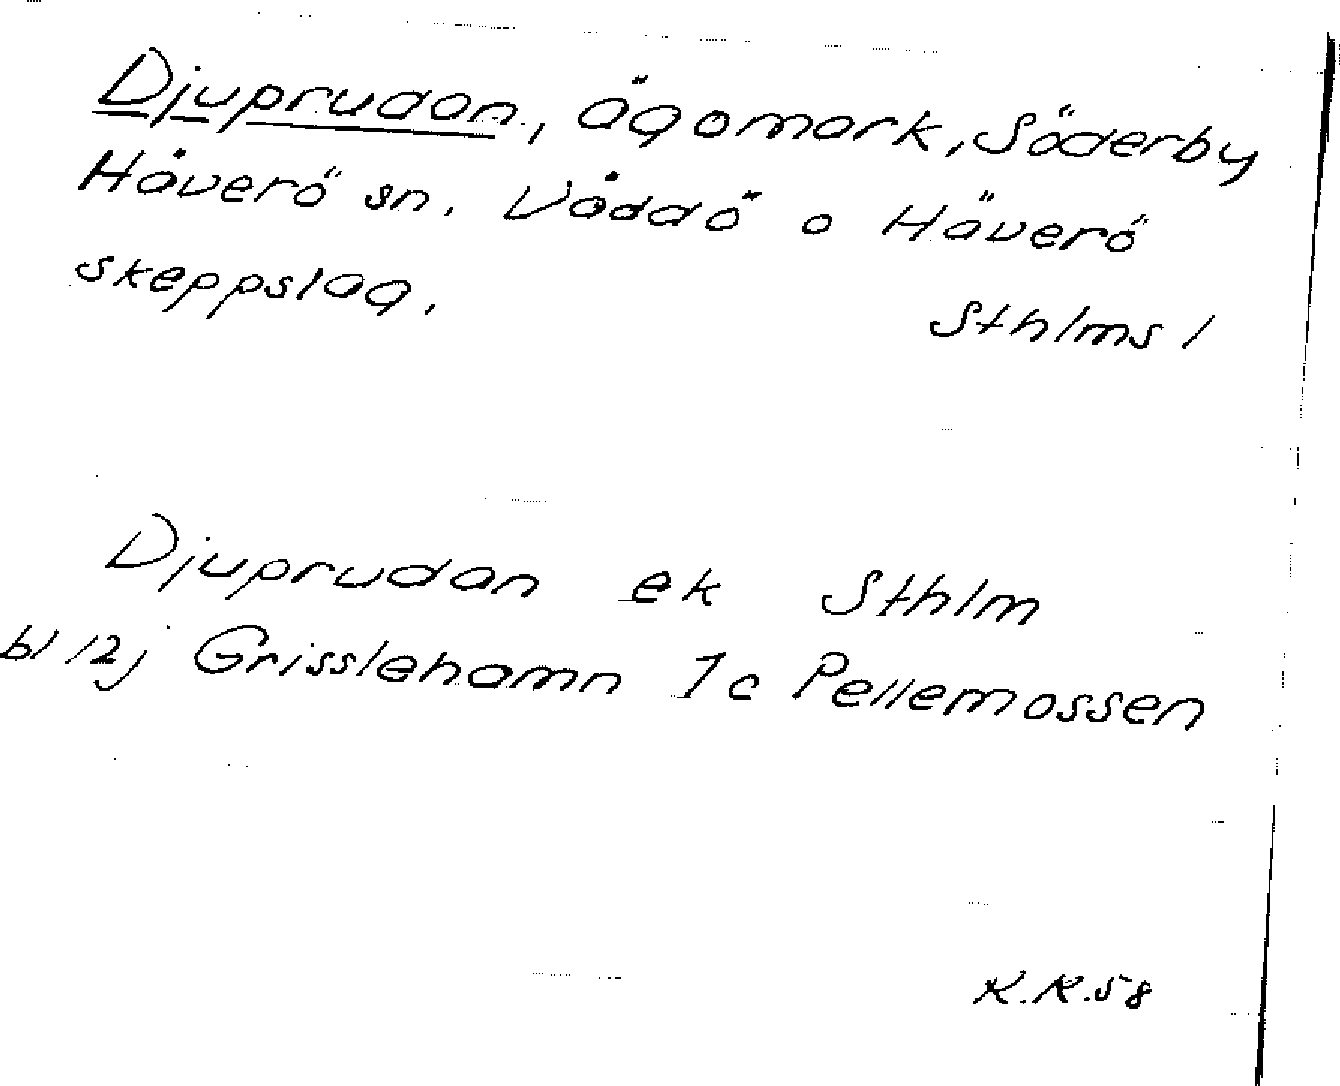 Djuprudan, ägomark, Söderby
Häverö sn. Väddö o Häverö
skeppslag.
Sthlms l
Djuprudan ek Sthlm
bl 12j Grisslehamn 7c Pellemossen
K.K.58